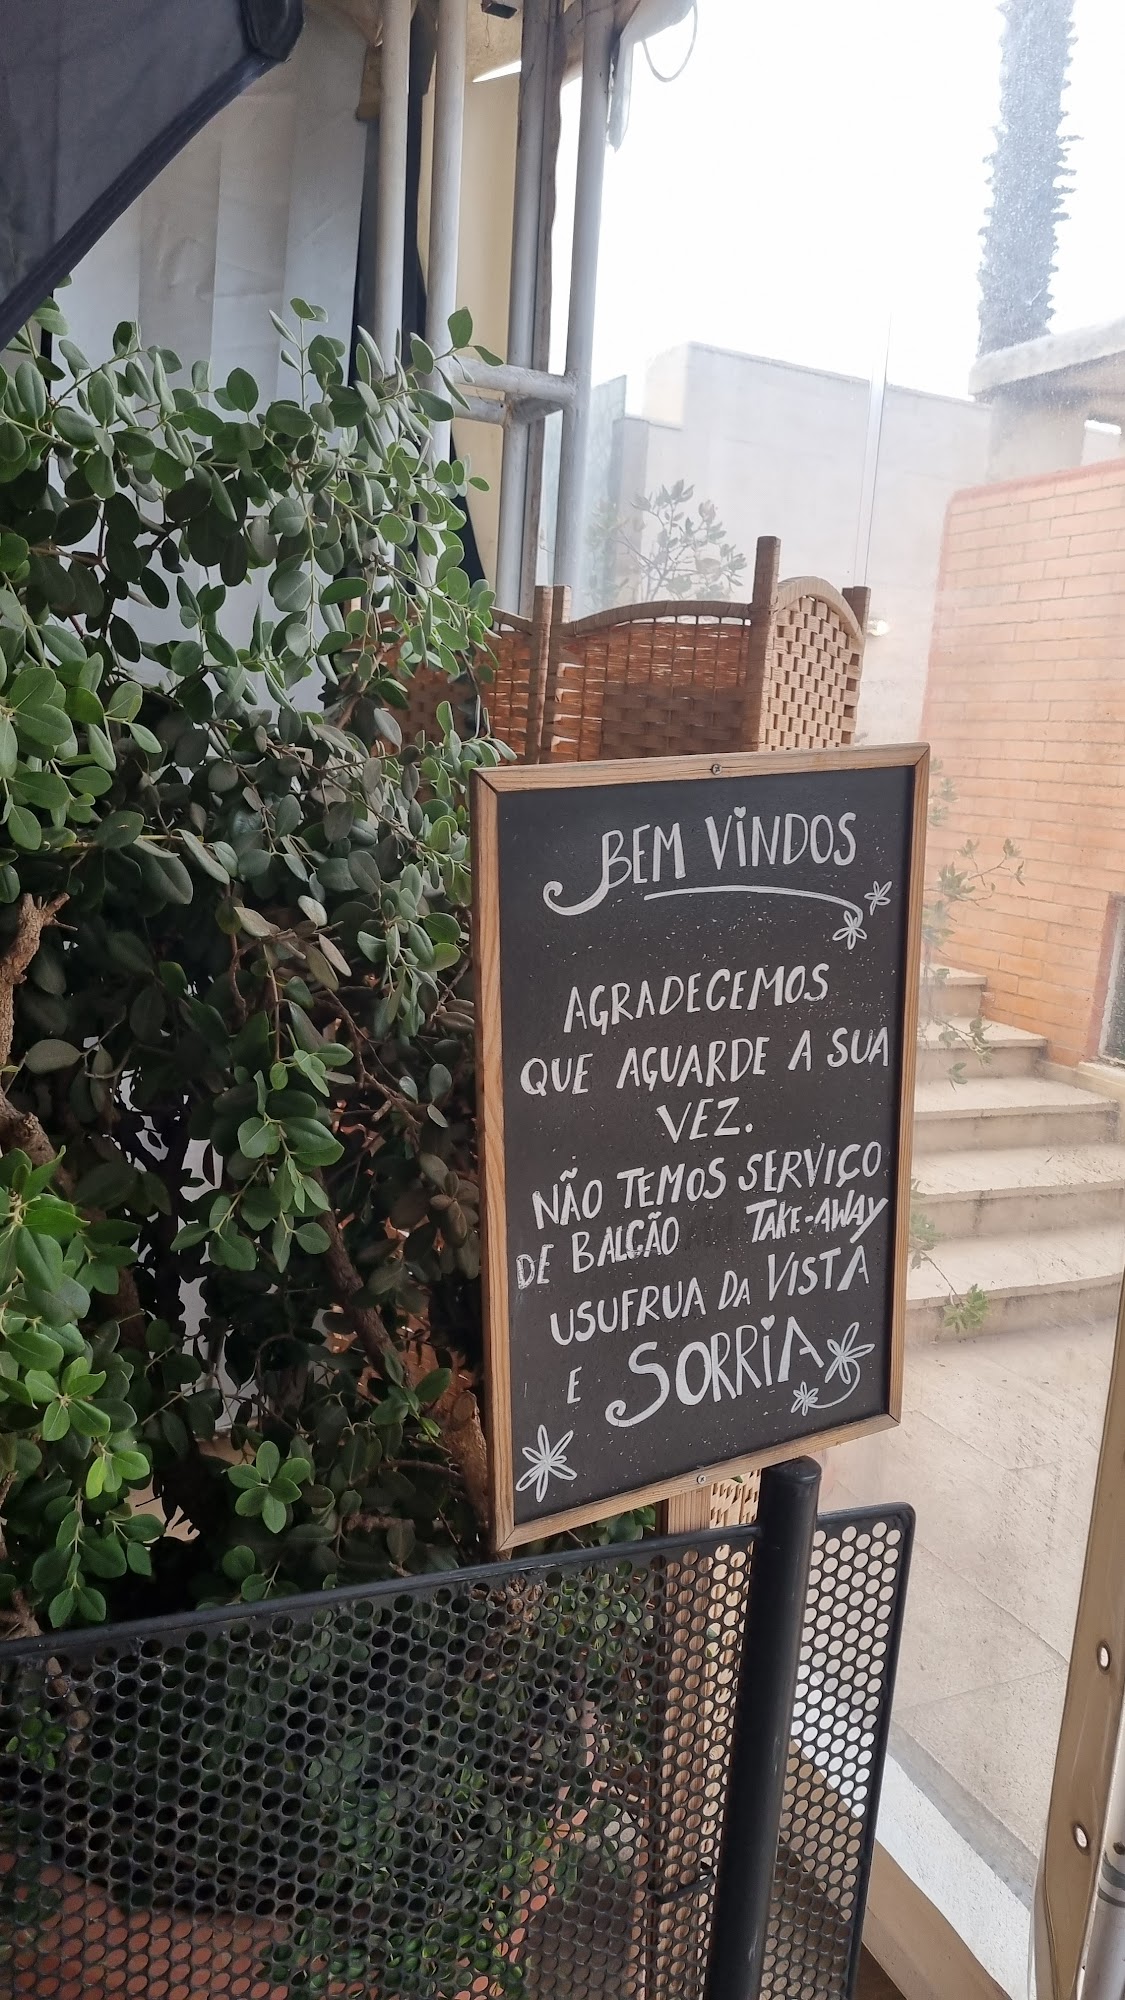 BEM VINDOS
AGRADECEMOS
QUE AGUARDE A SUA
VEZ.
NÃO TEMOS SERVIÇO
DE BALCÃO TAKE-AWAY
USUFRUA DA VISTA
E SORRIA